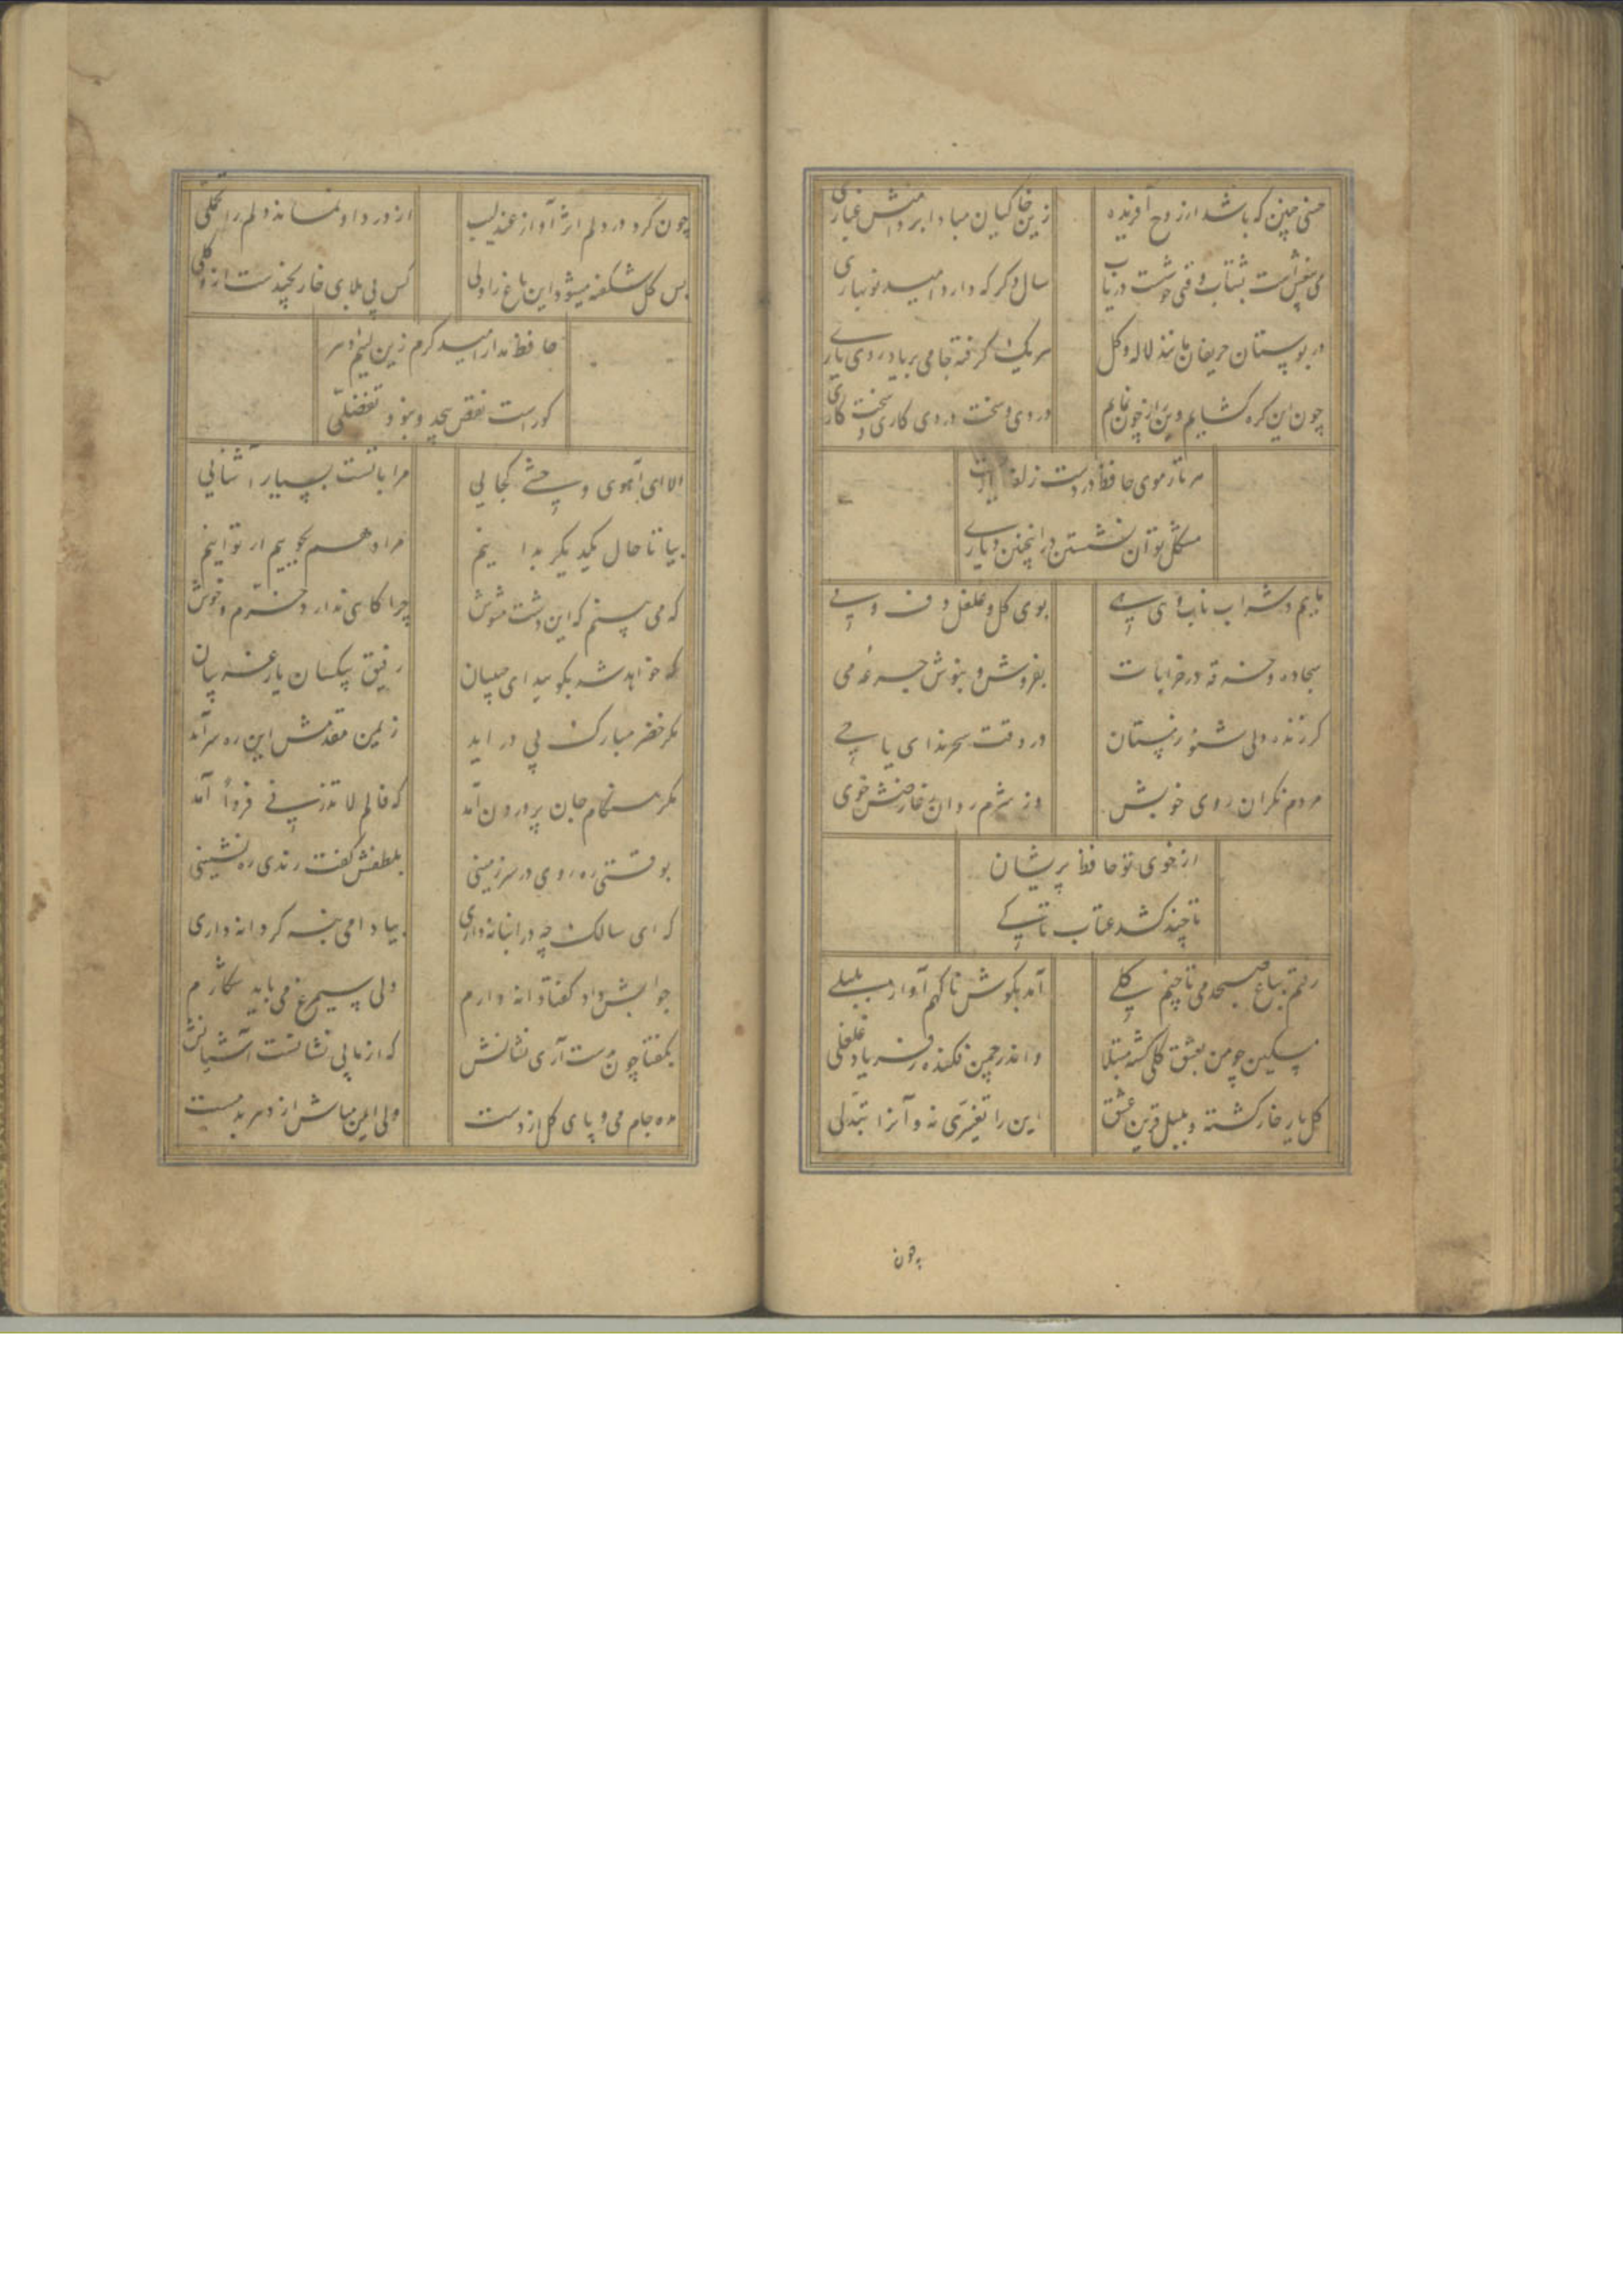 حسنی چنین که باشد از روح آفریده
زین خاکیان مبادا بر دامنش غباری
می بیغش است بشتاب وقتی خوشست دریاب
سال دگر که دارد امید نوبهاری
در بوستان حریفان مانند لاله و گل
هر یک گرفته جامی بر یاد روی یاری
چون این گره کشایم وین راز چون نمایم
دردی و سخت دردی کاری و سخت کاری
هر تار موی حافظ در دست زلف
مشکل توان نشستن در اینچنین دیاری
بوی گل و غلغل و
سجاده و خرقه در خرابات
بفروش و بنوش جرعه می
گر زنده دلی شنو ز مستان
در وقت سحر ندای یا حی
مردم نگران روی خویش
وز شرم روان ز عارضش خوی
از خوی تو حافظ پریشان
تا چند کشد عتاب تا کی
رفتم بباغ صبحدمی تا چنم گلی
آمد بگوش ناگهم آواز بلبلی
مسکین چو من بعشق گلی گشته مبتلا
و اندر چمن فکنده ز فریاد غلغلی
گل یار خار گشته و بلبل قرین عشق
این را تغیری نه و آنرا تبدلی
چون
چون کرد در دلم اثر آواز عندلیب
از درد او نماند دلم را تحملی
بس گل شکفته میشود این باغ را ولی
کس بی بلای خار نچیدست ازو گلی
حافظ مدار امید کرم زین
نقص بیحد و نبود تفضلی
الا ای آهوی وحشی کجایی
مرا با تست بسیار آشنایی
بیا تا حال یکدیگر بدانیم
مراد هم بجوییم ار توانیم
که می بینم که این دشت مشوش
چراگاهی ندارد خرم و خوش
که خواهد شد بگویید ای حبیبان
رفیق بیکسان یار غریبان
مگر خضر مبارک پی در آید
ز یمن مقدمش این ره سر آمد
مگر هنگام جان پرورون آمد
که فالم لا تذرنی فردا آمد
بوقتی ره روی در سرزمینی
بلطفش گفت رندی ره نشینی
که ای سالک چه در انبانه داری
بیا دامی بنه گر دانه داری
جوابش داد گفتا دانه دارم
ولی سیمرغ می باید شکارم
بگفتا چون بدست آری نشانش
که از ما بی نشانست آشیانش
مده جام می و پای گل از دست
ولی ایمن مباش از دهر بدمست